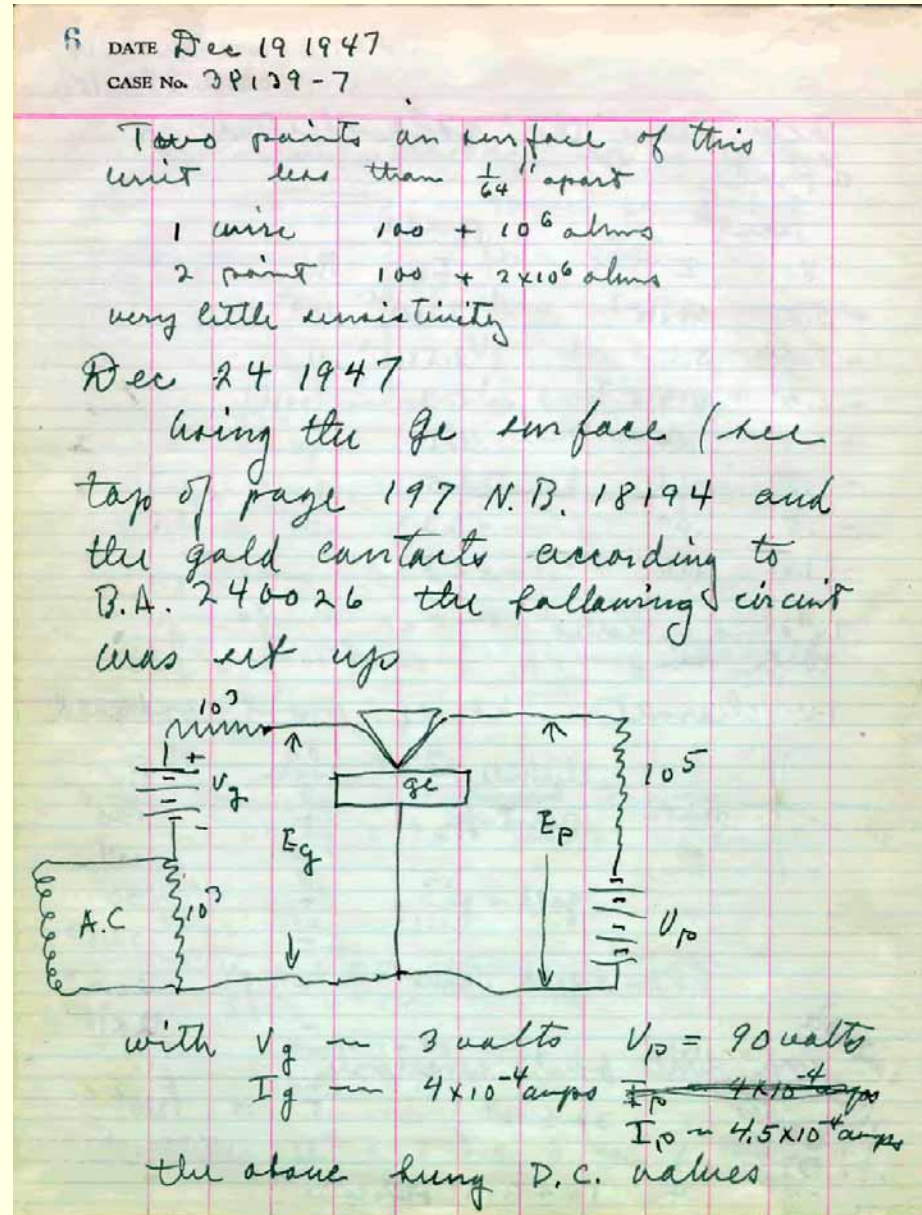 6 DATE Dec 19 1947
CASE No. 38139-7
Two points on surface of this
unit less than 1/64" apart
1 wire 100 + 10⁶ ohms
2 point 100 + 2x10⁶ ohms
very little sensistivity
Dec 24 1947
Using the Ge surface (see
top of page 197 N.B. 18194 and
the gold contacts according to
B.A. 240026 the following circuit
was set up
10³
+
Vg
-
Eg
ge
Ep
10⁵
A.C
10³
Vp
with Vg ~ 3 volts Vp = 90 volts
Ig ~ 4x10⁻⁴ amps Ip ~ 4x10⁻⁴ amps
Ip ~ 4.5x10⁻⁴ amps
the above being D.C. values